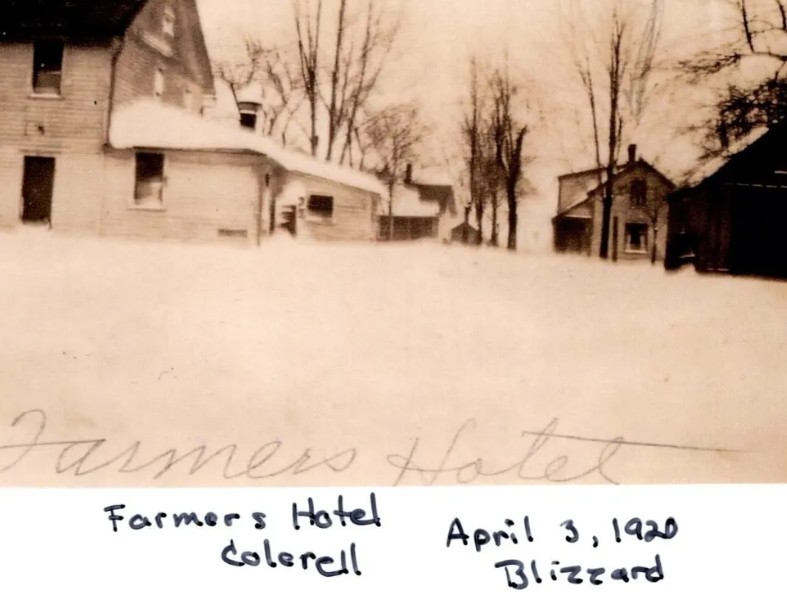 Farmers Hotel
Farmers Hotel
April 3, 1920
Colerell
Blizzard